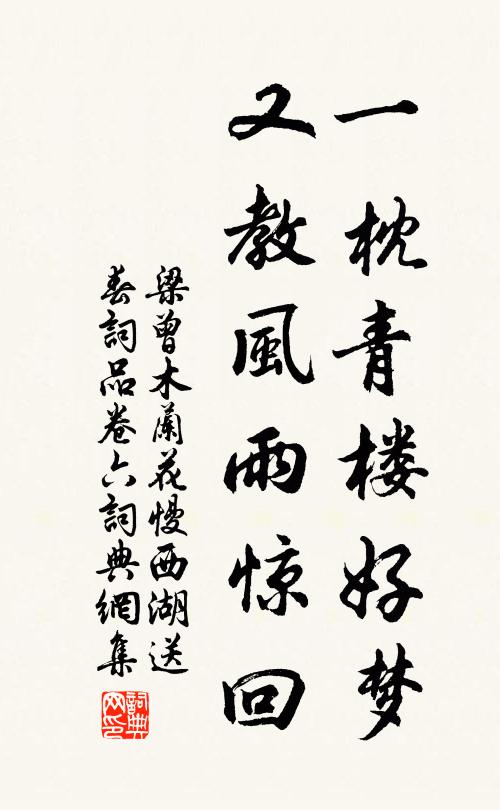 一枕青楼好梦
又教風雨惊回
梁曾木蘭花慢西湖送
春詞品卷六詞典網集
詞典
网印